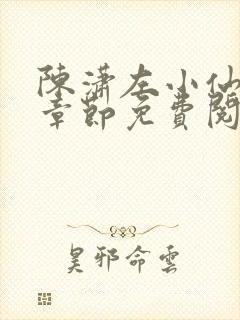 陳瀟左小仙
章節免費閱
昊邪命雲